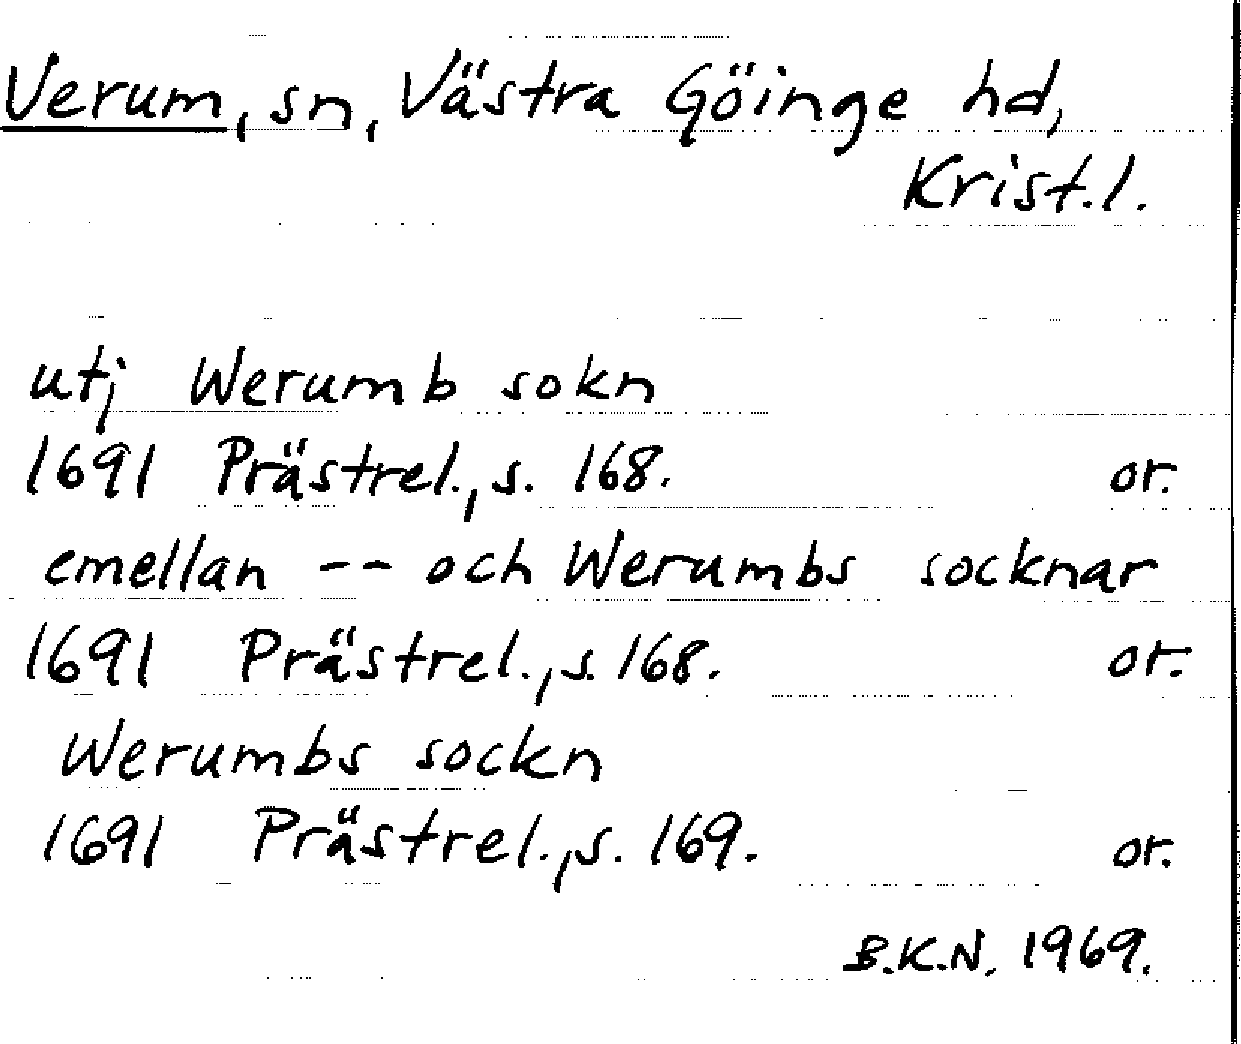 Verum, sn, Västra Göinge hd,
Krist.l.
utj Werumb sokn
1691 Prästrel., s. 168. or.
emellan -- och Werumbs socknar
1691 Prästrel., s. 168. or.
Werumbs sockn
1691 Prästrel., s. 169. or.
B.K.N. 1969.